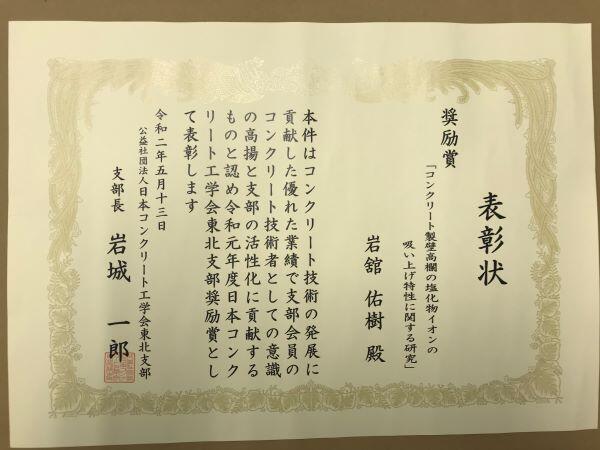 表彰状
奨励賞
「コンクリート製壁高欄の塩化物イオンの
吸い上げ特性に関する研究」
岩舘 佑樹 殿
本件はコンクリート技術の発展に
貢献した優れた業績で支部会員の
コンクリート技術者としての意識
の高揚と支部の活性化に貢献する
ものと認め令和元年度日本コンク
リート工学会東北支部奨励賞とし
て表彰します
令和二年五月十三日
公益社団法人日本コンクリート工学会東北支部
支部長 岩城 一郎